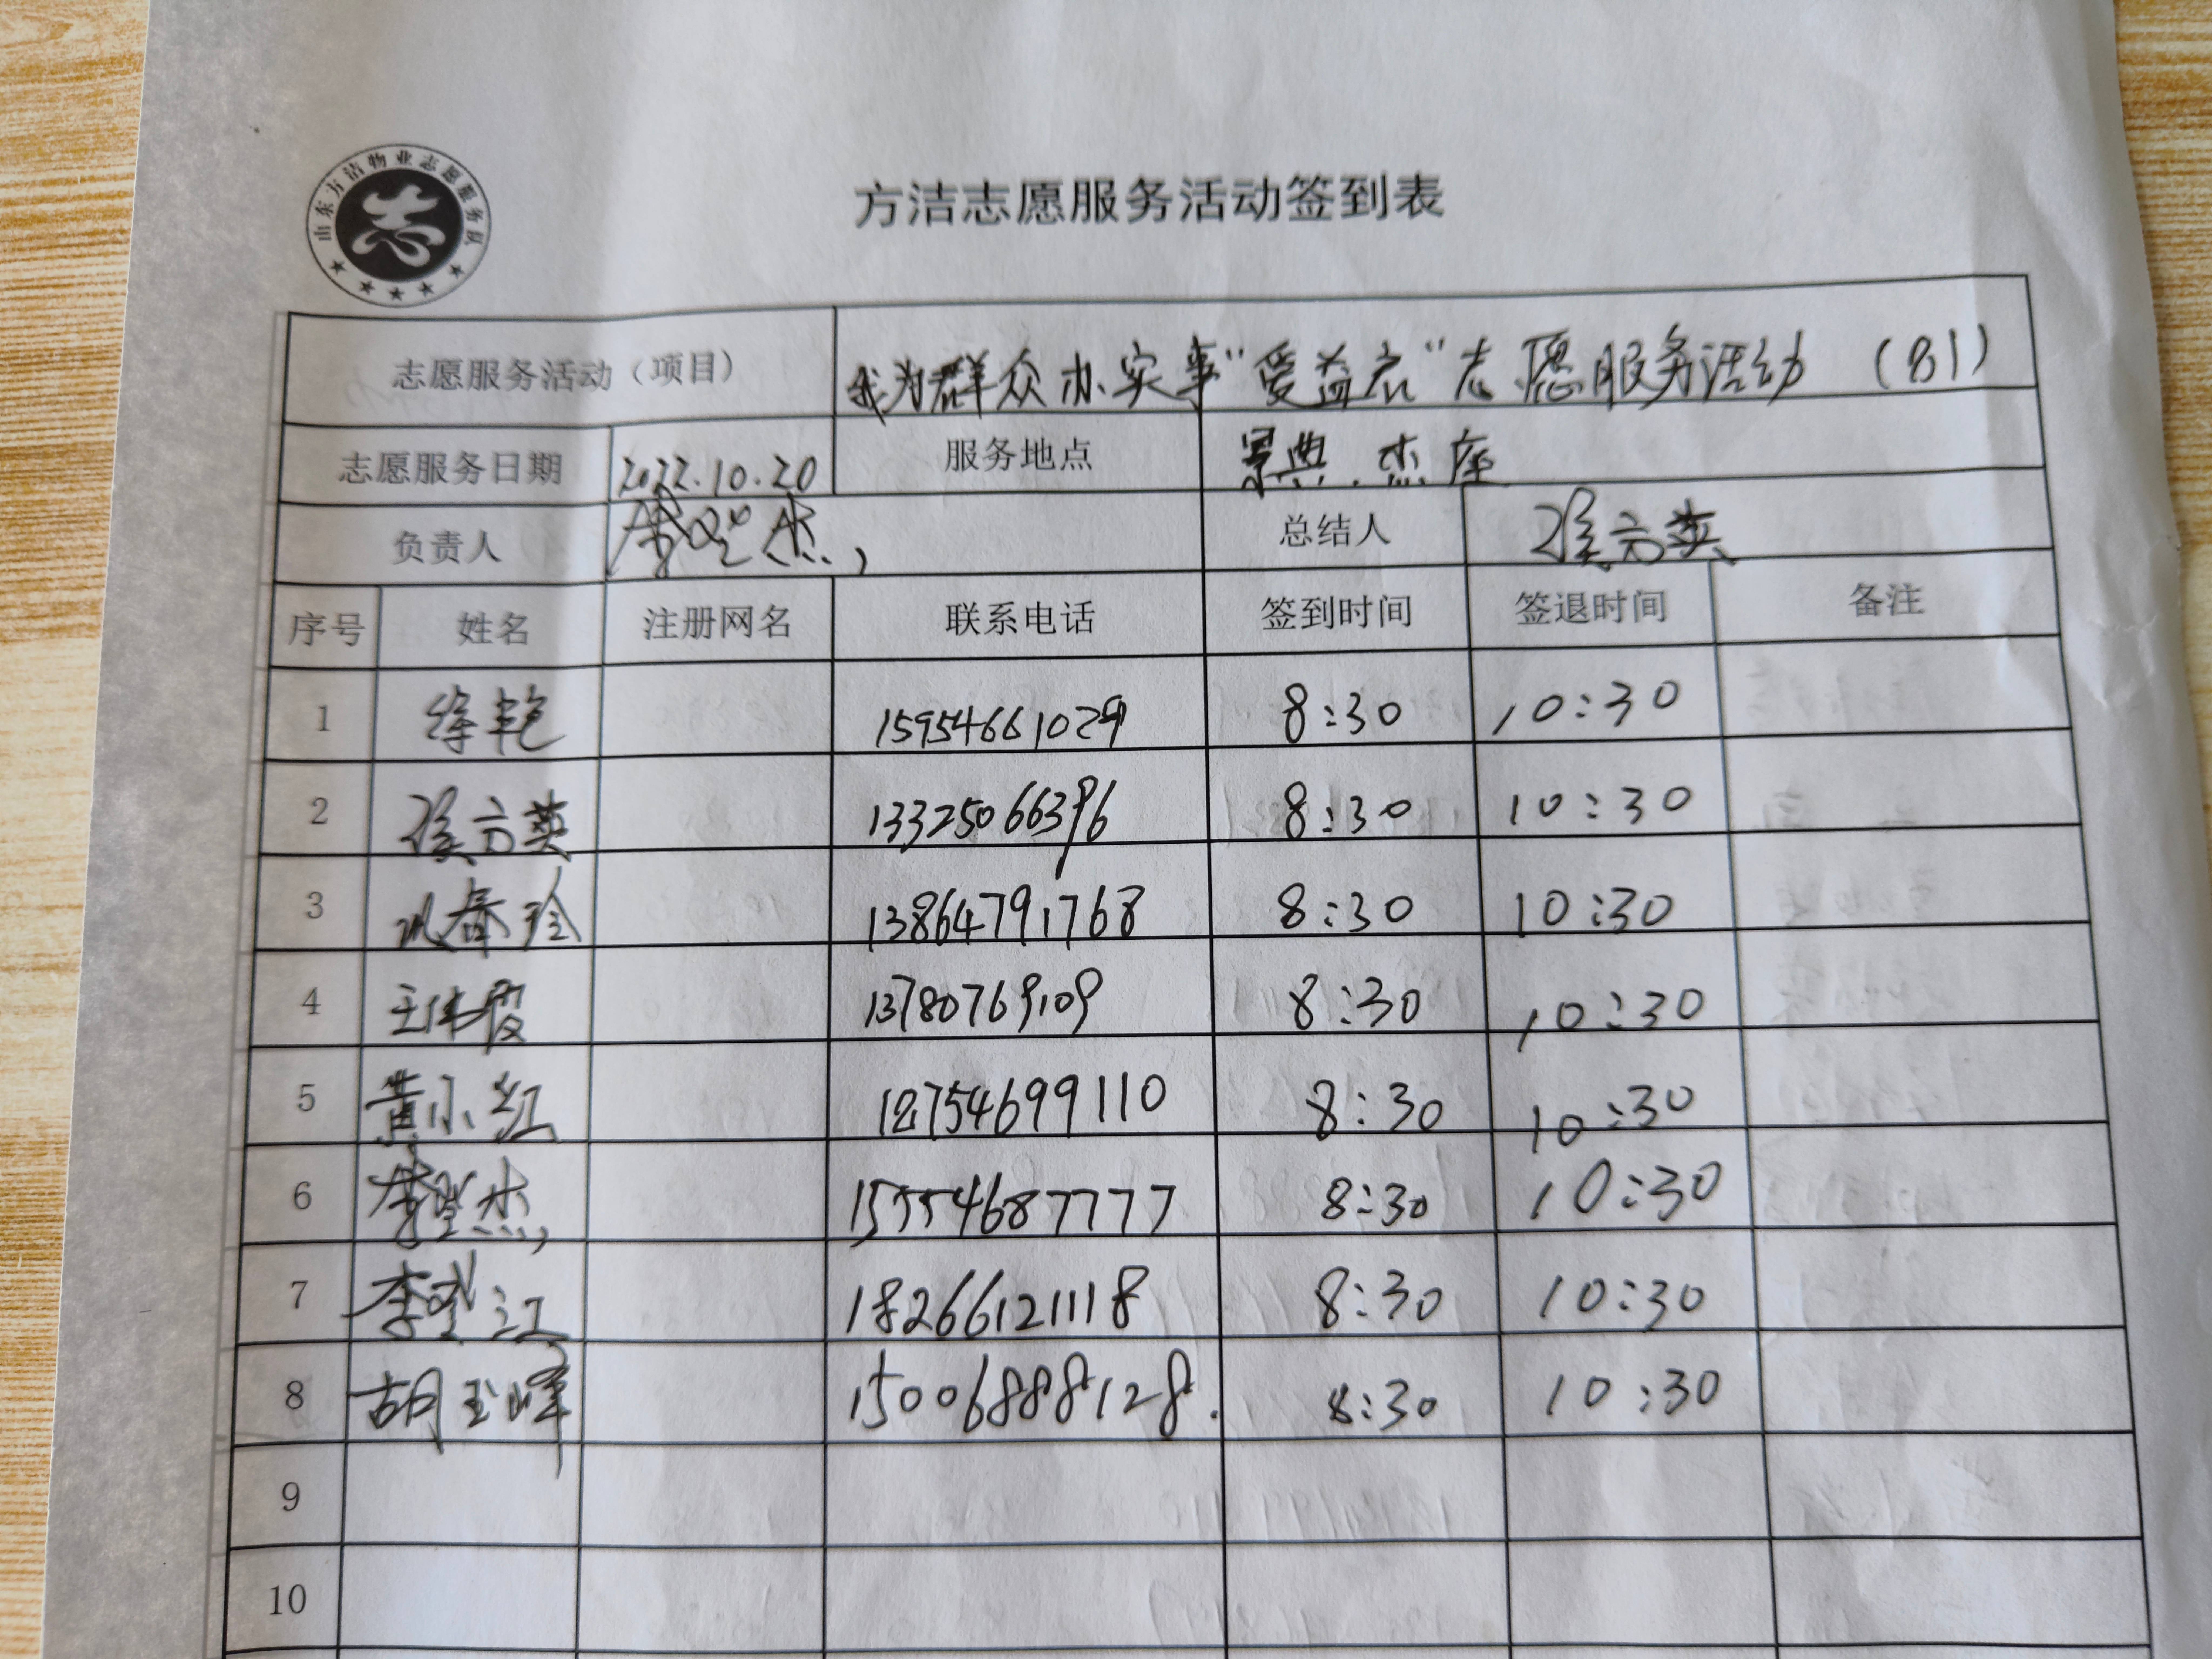 山东方洁物业志愿服务队
方洁志愿服务活动签到表
志愿服务活动（项目） 我为群众办实事“爱益衣”志愿服务活动（81）
志愿服务日期 2022.10.20 服务地点 景典.杰座
负责人 总结人 侯方英
序号 姓名 注册网名 联系电话 签到时间 签退时间 备注
1 徐艳 15954661029 8:30 10:30
2 侯方英 13325066396 8:30 10:30
3 巩春玲 13864791768 8:30 10:30
4 王伟霞 13780769109 8:30 10:30
5 黄小红 18754699110 8:30 10:30
6 15554687777 8:30 10:30
7 李 江 18266121118 8:30 10:30
8 胡玉峰 15006888128. 8:30 10:30
9
10